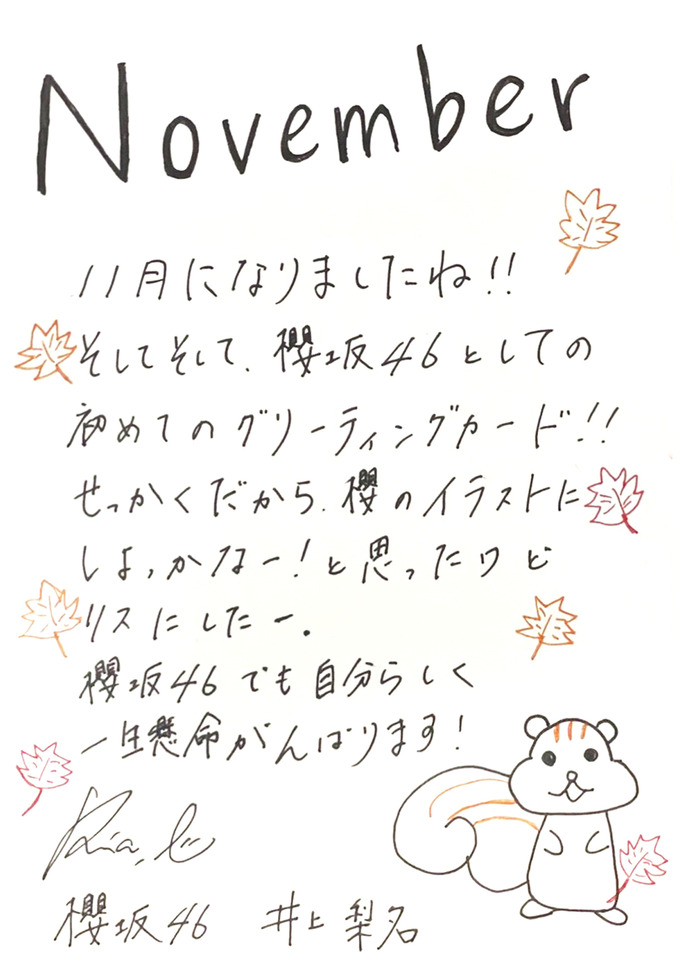 November
11月になりましたね!!
そしてそして、櫻坂46としての
初めてのグリーティングカード!!
せっかくだから、櫻のイラストに
しよっかなー!と思ったケド
リスにしたー。
櫻坂46でも自分らしく
一生懸命がんばります!
櫻坂46 井上梨名